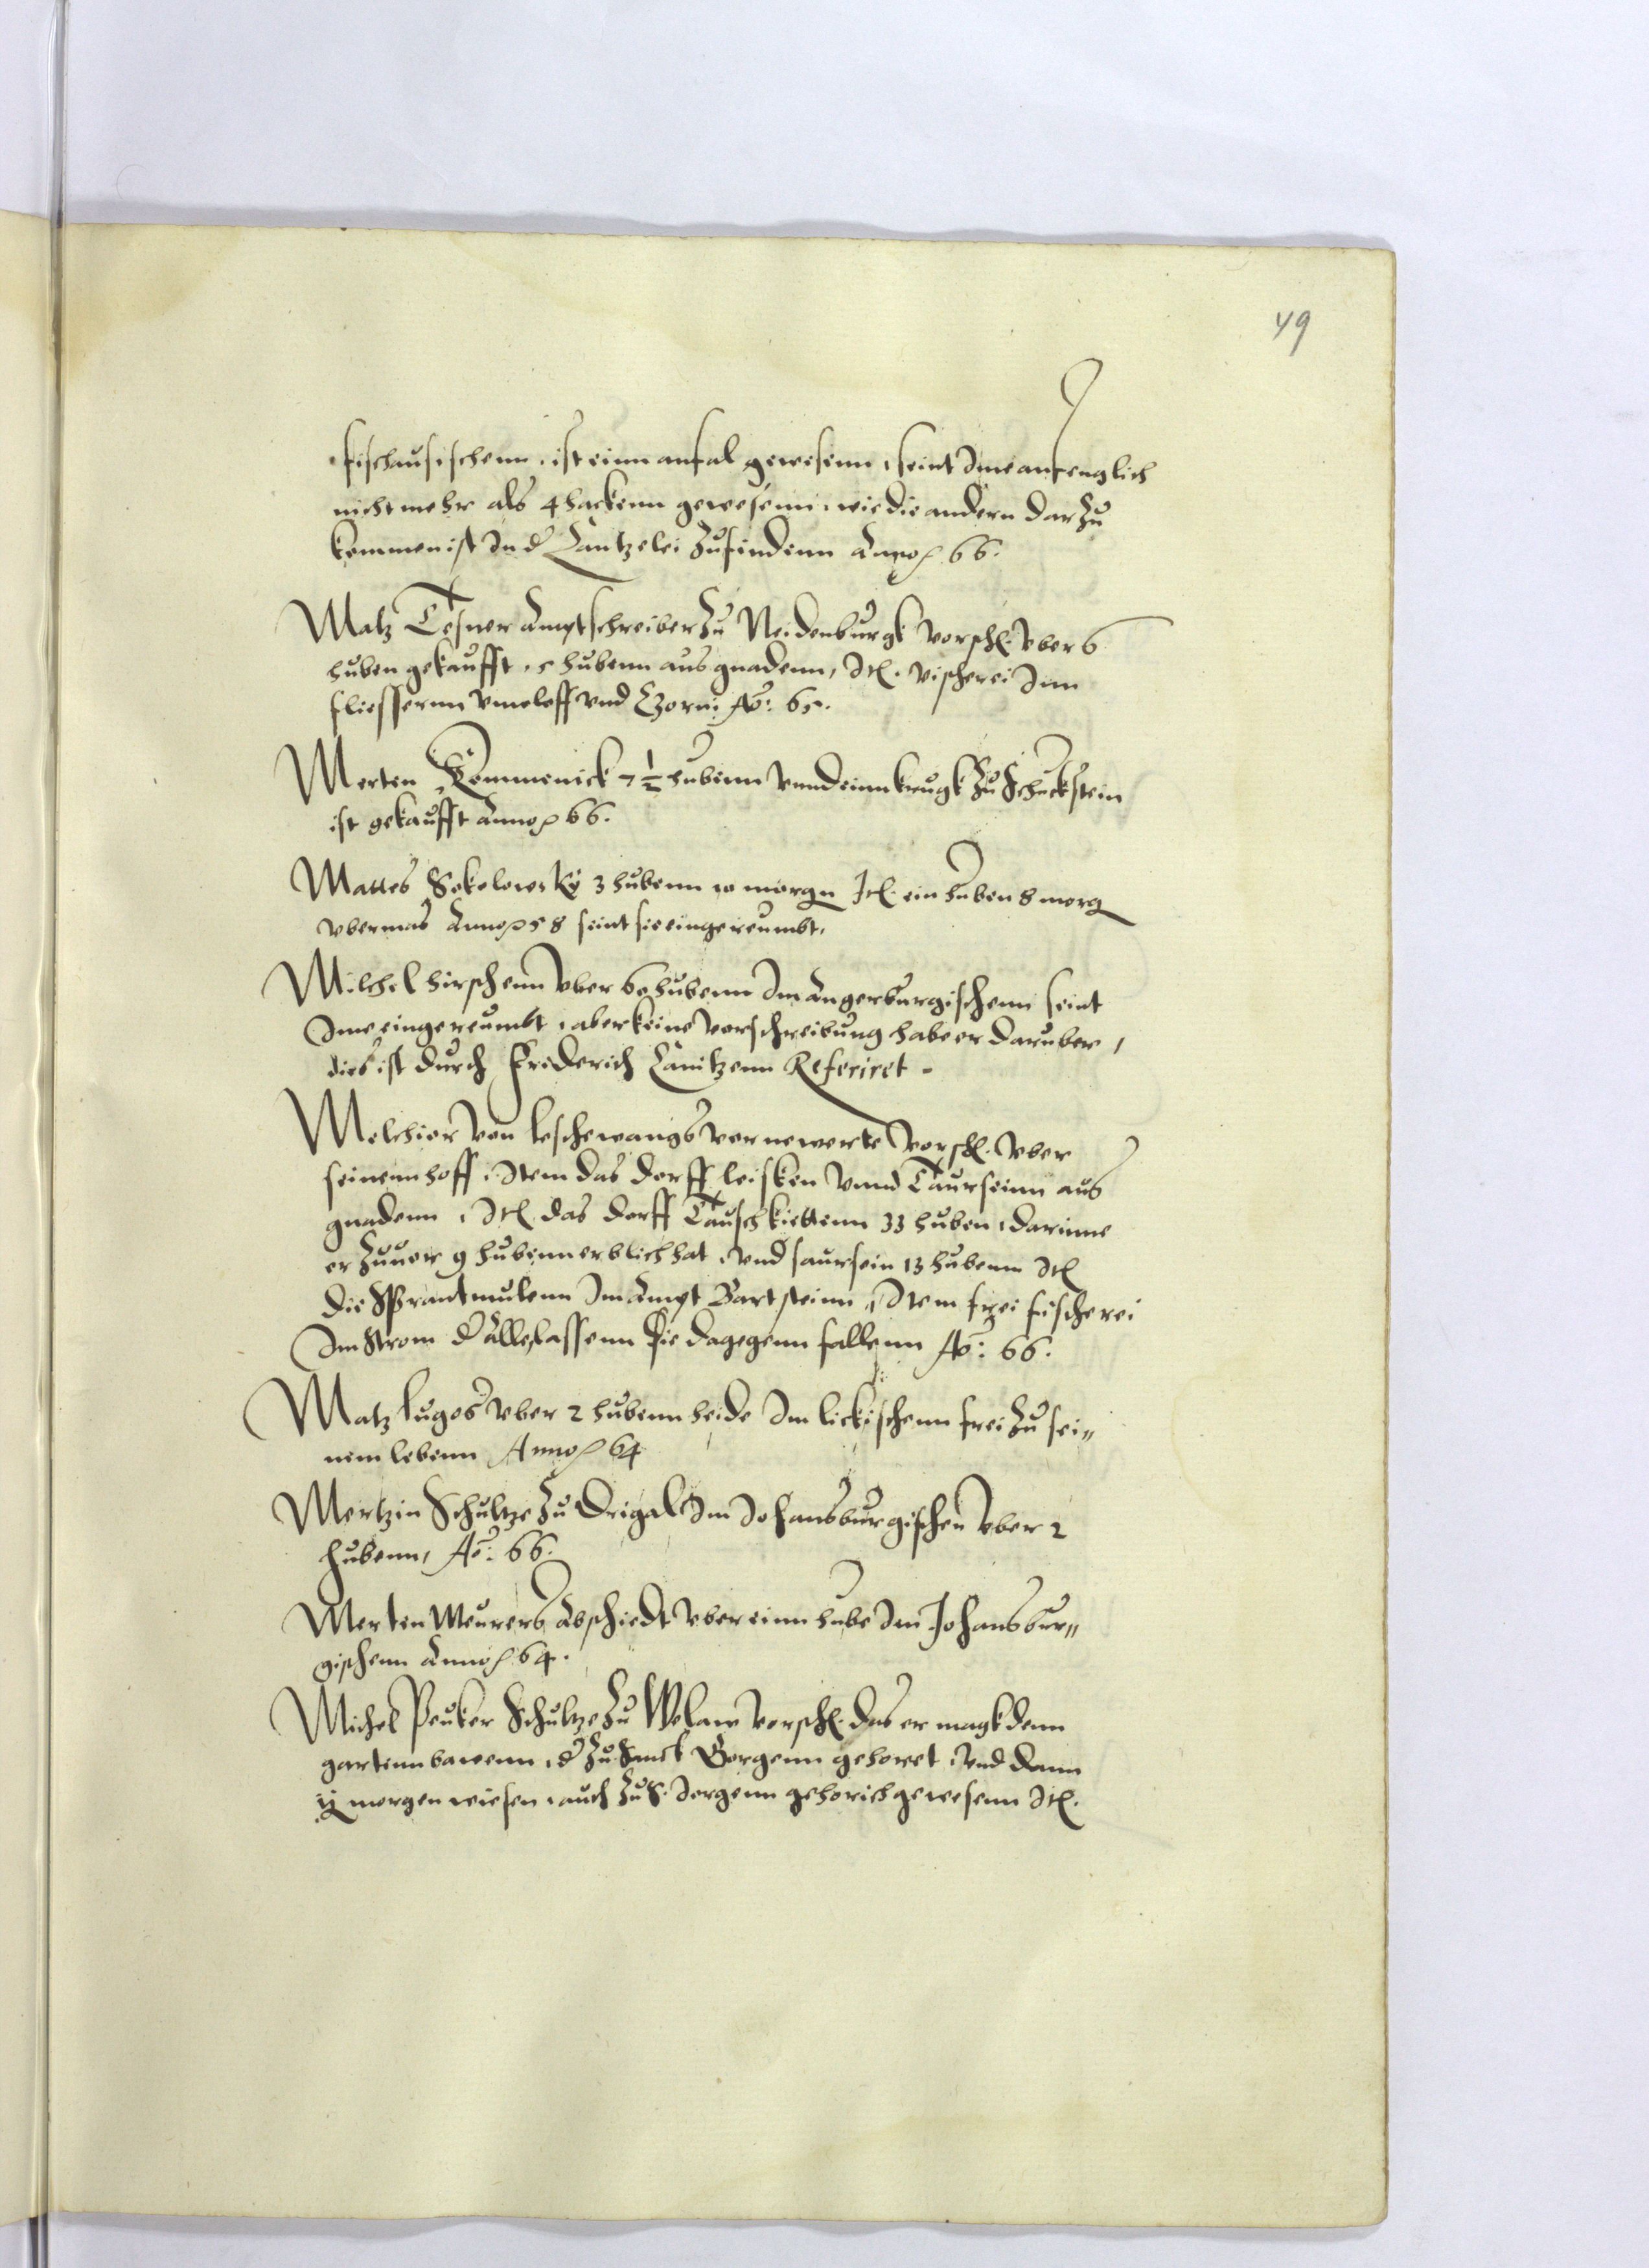 49
fischausischenn, ist einn anfal gewesenn, seint Ime anfenglich
nicht mehr als 4 hackenn gewesenn, wie die andern darzu
kommen ist In d Cantzelei zufindenn Anno 66.
Matz Tesner Amptschreiber zu Neidenburgk vorsch. vber 6
huben gekaufft, 5 hubenn aus gnadenn, Itl. vischerei Inn
fliessernn vmeloff vnd Czorni Ao: 65.
Merten Kommenick 7 1/2 hubenn vnnd einn krugk zu Schuckstein
ist gekaufft Anno 66.
Mattes Sokolowsky 3 hubenn 10 morgn Itl. ein huben 8 morg
vbermas Anno 58 seint sie eingereumbt,
Milchel hirschenn vber 60 hubenn Im Angerburgischenn seint
Ime eingereumbt, aber keine vorschreibung habe er daruber,
dies ist durch Friderich Canitzenn Referiret -
Melchior von leschewangs vernewerte vorsch. vber
seinenn hoff, Item das dorff leisken vnnd Taurseinn aus
gnadenn, Itl. das dorff Tauschkiettenn 33 huben, darinne
er zuuor 9 hubenn erblich hat, vnd saursein 13 hubenn Itl
die Sprantmulenn Im Ampt Bartsteinn, Item frei fischerei
Im Strom d Alle, lassenn sie dagegenn fallenn Ao: 66.
Matz lugos vber 2 hubenn heide Im lickischenn frei zu sei„
nem lebenn Anno 64
Mertzin Schultze zu Drigal Im Johansburgischen vber 2
hubenn, Ao: 66.
Merten Meurers Abschiedt vber einn hube Im Johansbur„
gischenn Anno 64.
Michel Peuker Schultze zu Welaw vorsch. das er magk denn
gartenn bawenn, d zu Sanct Gorgenn gehoret, vnd dann
ij morgen wiesen, auch zu S. Jorgenn gehorich gewesenn Itl.